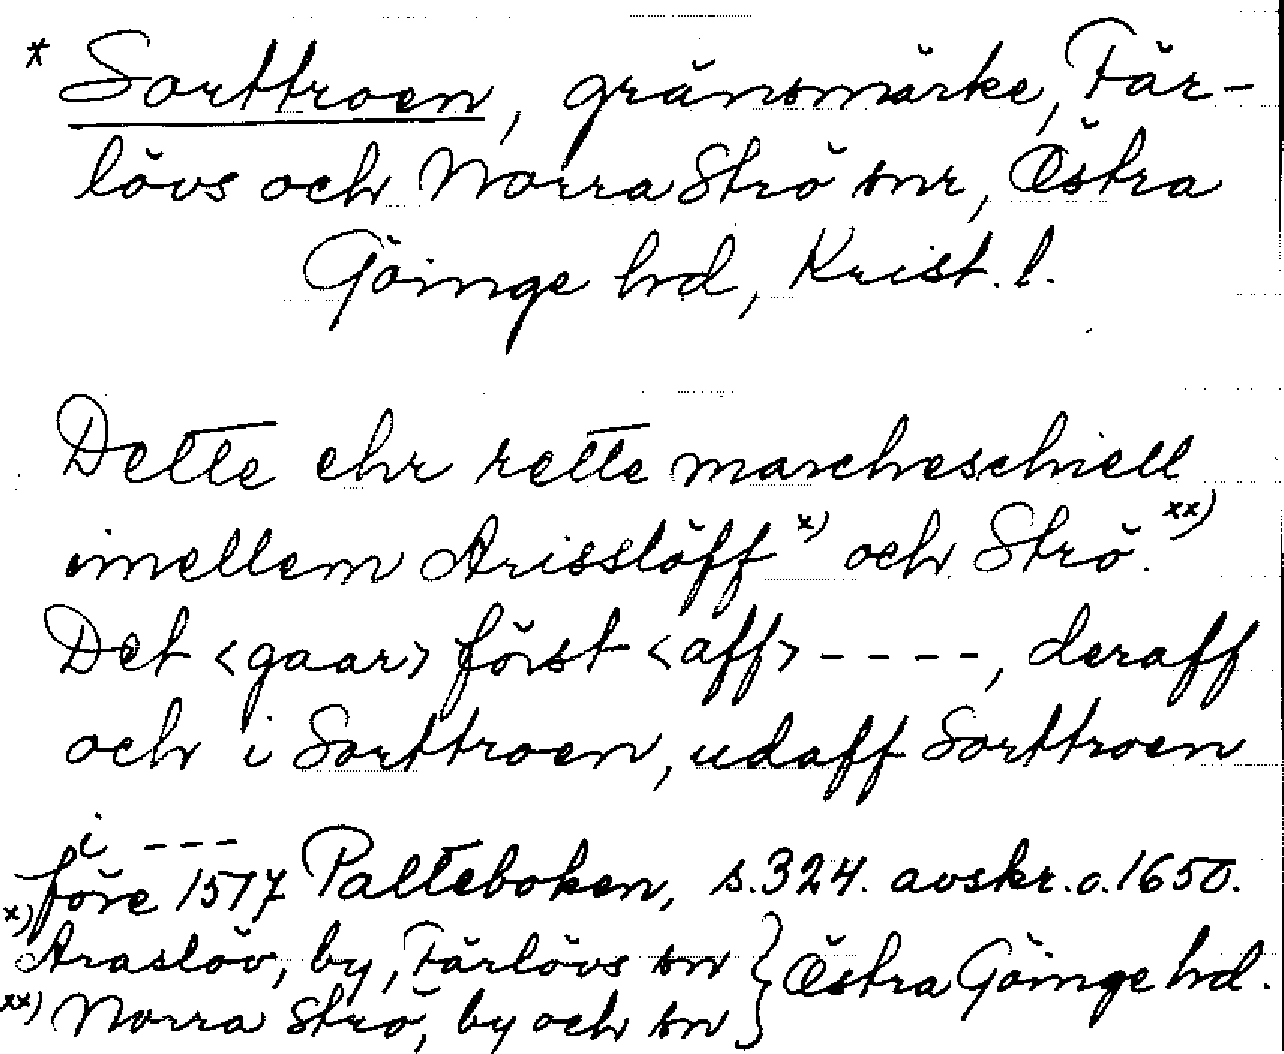 * Sorttroen, gränsmärke, Fär-
lövs och Norra Strö snr, Östra
Göinge hd, Krist. l.
Dette ehr rette marcheschiell
imellem Arisslöff x) och Strö. xx)
Det <gaar> först <aff> ----, deraff
och i Sorttroen, udaff Sorttroen
i ---
före 1517 Palteboken, s.324. avskr.o.1650.
x) Araslöv, by, Färlövs sn } Östra Göinge hd.
xx) Norra Strö, by och sn